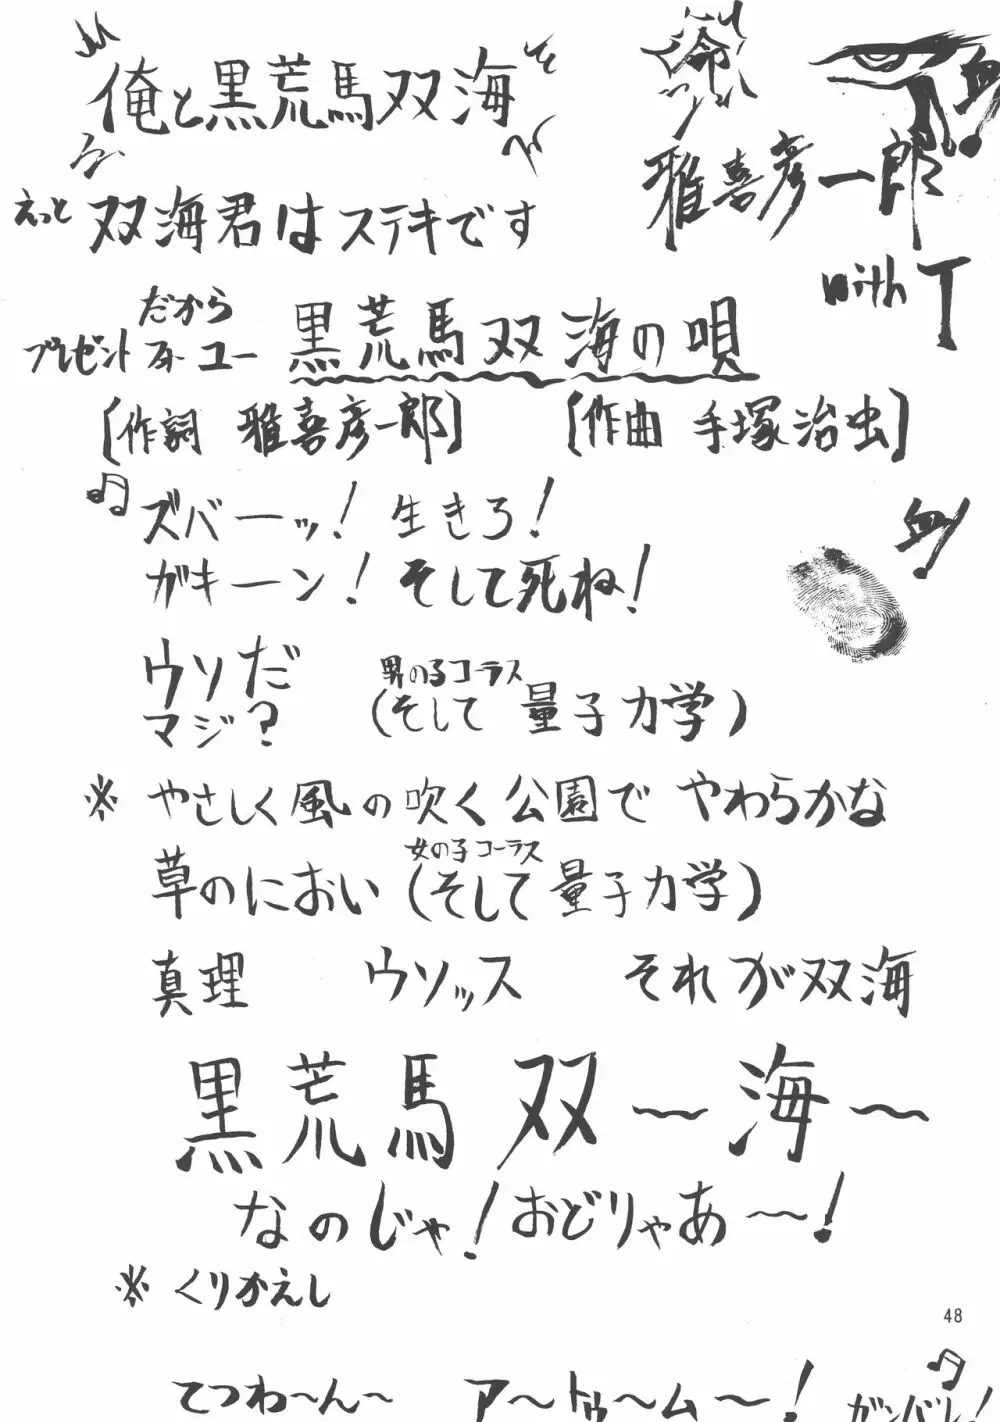 俺と黒荒馬双海
命
血!
雅喜彦一郎
with T
えっと 双海君はステキです
だから
プレゼント フォー ユー 黒荒馬双海の唄
[作詞 雅喜彦一郎] [作曲 手塚治虫]
♫ ズバーッ! 生きろ!
血!
ガキーン! そして死ね!
ウソだ
マジ?
男の子コーラス
(そして 量子力学)
※ やさしく風の吹く公園で やわらかな
女の子コーラス
草のにおい (そして 量子力学)
真理 ウソッス それが双海
黒荒馬双〜海〜
なのじゃ! おどりゃあ〜!
※ くりかえし
48
てつわ〜ん〜 ア〜トゥ〜ム〜! ♫ ガンバレ!